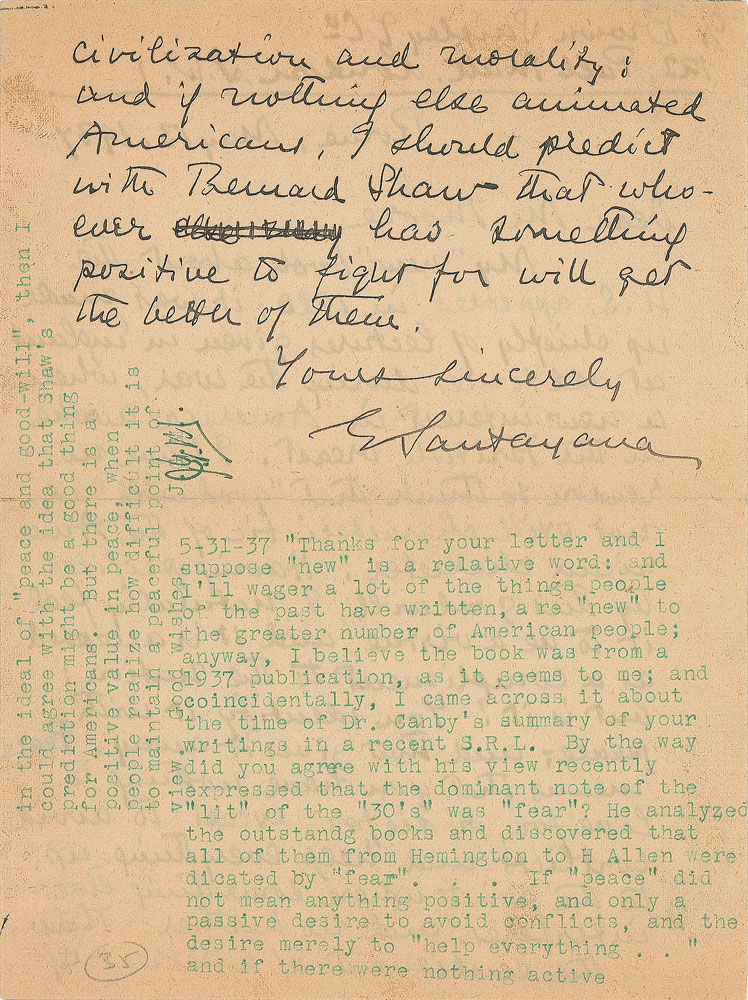 civilization and morality:
and if nothing else animated
Americans, I should predict
with Bernard Shaw that who-
ever has something
positive to fight for will get
the better of them.
Yours sincerely
G Santayana
5-31-37 "Thanks for your letter and I
suppose "new" is a relative word: and
I'll wager a lot of the things people
of the past have written, are "new" to
the greater number of American people;
anyway, I believe the book was from a
1937 publication, as it seems to me; and
coincidentally, I came across it about
the time of Dr. Canby's summary of your
writings in a recent S.R.L. By the way
did you agree with his view recently
expressed that the dominant note of the
"lit" of the "30's" was "fear"? He analyzed
the outstandg books and discovered that
all of them from Hemington to H Allen were
dicated by "fear". . . If "peace" did
not mean anything positive, and only a
passive desire to avoid conflicts, and the
desire merely to "help everything . . "
and if there were nothing active
in the ideal of "peace and good-will", then I
could agree with the idea that Shaw's
prediction might be a good thing
for Americans. But there is a
positive value in peace, when
people realize how difficult it is
to maintain a peaceful point of
view. Good wishes
35